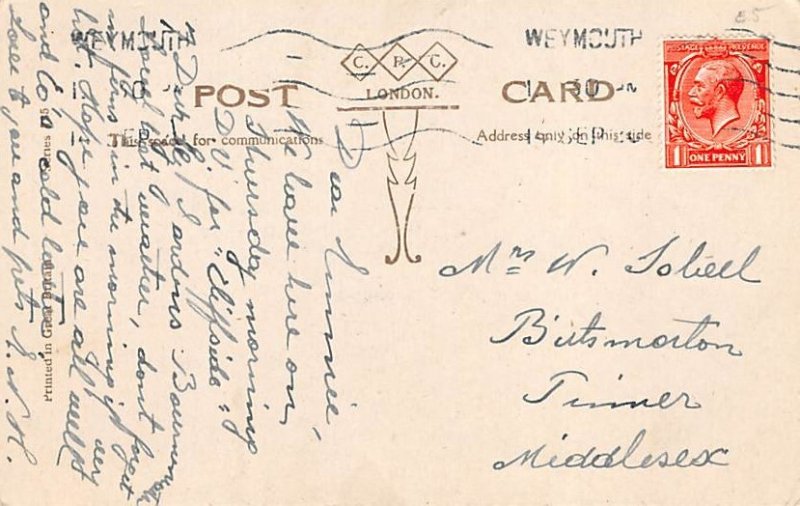 WEYMOUTH
WEYMOUTH
C. P. C.
LONDON.
POST CARD
This space for communications
Address only on this side
POSTAGE REVENUE
1 ONE PENNY 1
Printed in Great Britain
Dear Minnie,
We leave here on
Thursday morning
D.V. for "Cliffside"
Gardens Bournemouth
Great hot weather, don't forget
in the morning if very
hot. Hope you are all well
and Co's cold better.
Love to you and pets
Mrs W. Isbell
Birtsmorton
Pinner
Middlesex